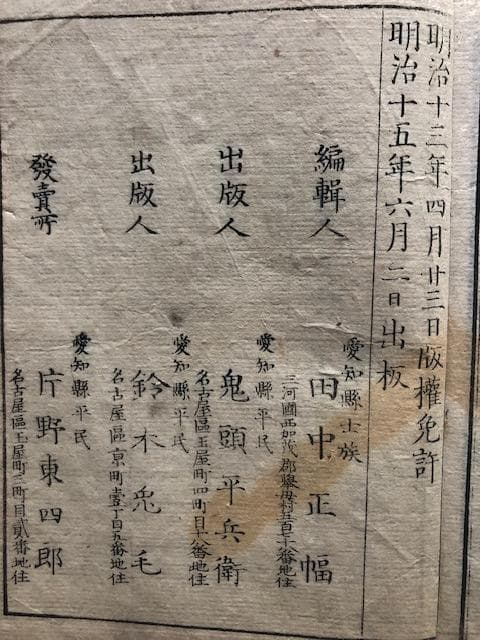 明治十三年四月廿三日版權免許
明治十五年六月二日出板
編輯人
愛知縣士族
田中正幅
三河國西加茂郡擧母村五百七十八番地住
出版人
愛知縣平民
鬼頭平兵衛
名古屋區玉屋町四町目十八番地住
出版人
愛知縣平民
鈴木兎毛
名古屋區京町壹丁目五番地住
發賣所
愛知縣平民
片野東四郎
名古屋區玉屋町三町目貳番地住